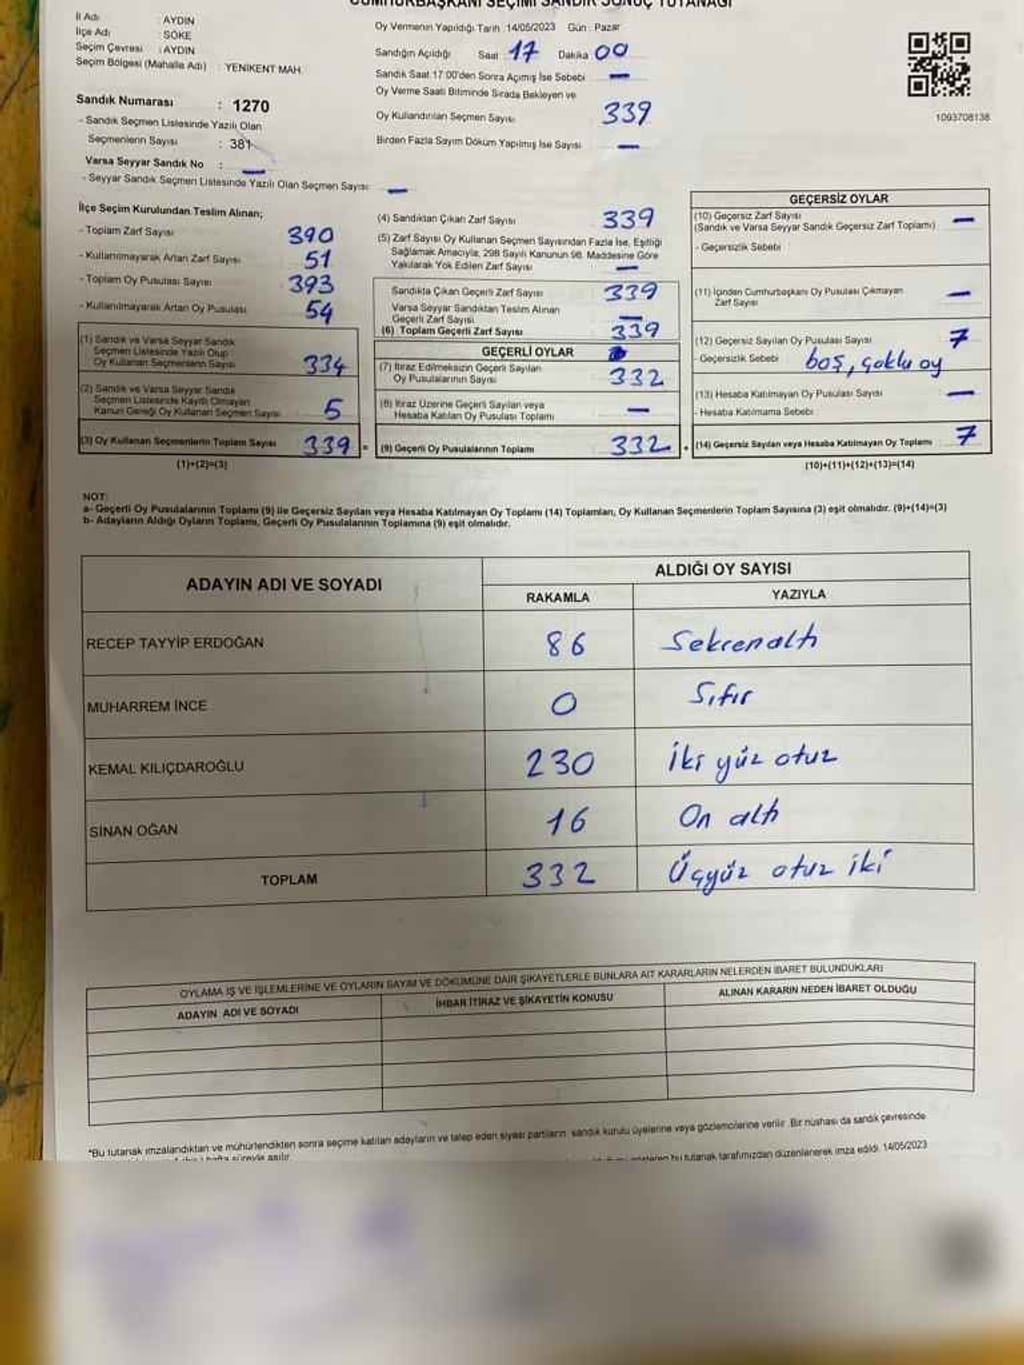 CUMHURBAŞKANI SEÇİMİ SANDIK SONUÇ TUTANAĞI
İl Adı : AYDIN
İlçe Adı : SÖKE
Seçim Çevresi : AYDIN
Seçim Bölgesi (Mahalle Adı) : YENİKENT MAH.
Sandık Numarası : 1270
- Sandık Seçmen Listesinde Yazılı Olan
Seçmenlerin Sayısı : 381
Varsa Seyyar Sandık No : —
- Seyyar Sandık Seçmen Listesinde Yazılı Olan Seçmen Sayısı: —
Oy Vermenin Yapıldığı Tarih : 14/05/2023 Gün : Pazar
Sandığın Açıldığı Saat 17 Dakika 00
Sandık Saat 17:00'den Sonra Açılmış İse Sebebi —
Oy Verme Saati Bitiminde Sırada Bekleyen ve
Oy Kullandırılan Seçmen Sayısı 339
Birden Fazla Sayım Döküm Yapılmış İse Sayısı —
1093708138
İlçe Seçim Kurulundan Teslim Alınan;
- Toplam Zarf Sayısı 390
- Kullanılmayarak Artan Zarf Sayısı 51
- Toplam Oy Pusulası Sayısı 393
- Kullanılmayarak Artan Oy Pusulası 54
(1) Sandık ve Varsa Seyyar Sandık
Seçmen Listesinde Yazılı Olup
Oy Kullanan Seçmenlerin Sayısı 334
(2) Sandık ve Varsa Seyyar Sandık
Seçmen Listesinde Kayıtlı Olmayan
Kanun Gereği Oy Kullanan Seçmen Sayısı 5
(3) Oy Kullanan Seçmenlerin Toplam Sayısı 339 =
(1)+(2)=(3)
(4) Sandıktan Çıkan Zarf Sayısı 339
(5) Zarf Sayısı Oy Kullanan Seçmen Sayısından Fazla İse, Eşitliği
Sağlamak Amacıyla, 298 Sayılı Kanunun 98. Maddesine Göre
Yakılarak Yok Edilen Zarf Sayısı —
Sandıkta Çıkan Geçerli Zarf Sayısı 339
Varsa Seyyar Sandıktan Teslim Alınan
Geçerli Zarf Sayısı —
(6) Toplam Geçerli Zarf Sayısı 339
GEÇERLİ OYLAR
(7) İtiraz Edilmeksizin Geçerli Sayılan
Oy Pusulalarının Sayısı 332
(8) İtiraz Üzerine Geçerli Sayılan veya
Hesaba Katılan Oy Pusulası Toplamı —
(9) Geçerli Oy Pusulalarının Toplamı 332 +
GEÇERSİZ OYLAR
(10) Geçersiz Zarf Sayısı —
(Sandık ve Varsa Seyyar Sandık Geçersiz Zarf Toplamı)
- Geçersizlik Sebebi
(11) İçinden Cumhurbaşkanı Oy Pusulası Çıkmayan —
Zarf Sayısı
(12) Geçersiz Sayılan Oy Pusulası Sayısı 7
- Geçersizlik Sebebi boş, çoklu oy
(13) Hesaba Katılmayan Oy Pusulası Sayısı —
- Hesaba Katılmama Sebebi
(14) Geçersiz Sayılan veya Hesaba Katılmayan Oy Toplamı 7
(10)+(11)+(12)+(13)=(14)
NOT:
a- Geçerli Oy Pusulalarının Toplamı (9) ile Geçersiz Sayılan veya Hesaba Katılmayan Oy Toplamı (14) Toplamları, Oy Kullanan Seçmenlerin Toplam Sayısına (3) eşit olmalıdır. (9)+(14)=(3)
b- Adayların Aldığı Oyların Toplamı, Geçerli Oy Pusulalarının Toplamına (9) eşit olmalıdır.
ADAYIN ADI VE SOYADI ALDIĞI OY SAYISI
RAKAMLA YAZIYLA
RECEP TAYYİP ERDOĞAN 86 Seksenaltı
MUHARREM İNCE 0 Sıfır
KEMAL KILIÇDAROĞLU 230 İki yüz otuz
SİNAN OĞAN 16 On altı
TOPLAM 332 Üçyüz otuz iki
OYLAMA İŞ VE İŞLEMLERİNE VE OYLARIN SAYIM VE DÖKÜMÜNE DAİR ŞİKAYETLERLE BUNLARA AİT KARARLARIN NELERDEN İBARET BULUNDUKLARI
ADAYIN ADI VE SOYADI İHBAR İTİRAZ VE ŞİKAYETİN KONUSU ALINAN KARARIN NEDEN İBARET OLDUĞU
*Bu tutanak imzalandıktan ve mühürlendikten sonra seçime katılan adayların ve talep eden siyasi partilerin sandık kurulu üyelerine veya gözlemcilerine verilir. Bir nüshası da sandık çevresinde
hafta süreyle asılır.
bu tutanak tarafımızdan düzenlenerek imza edildi. 14/05/2023